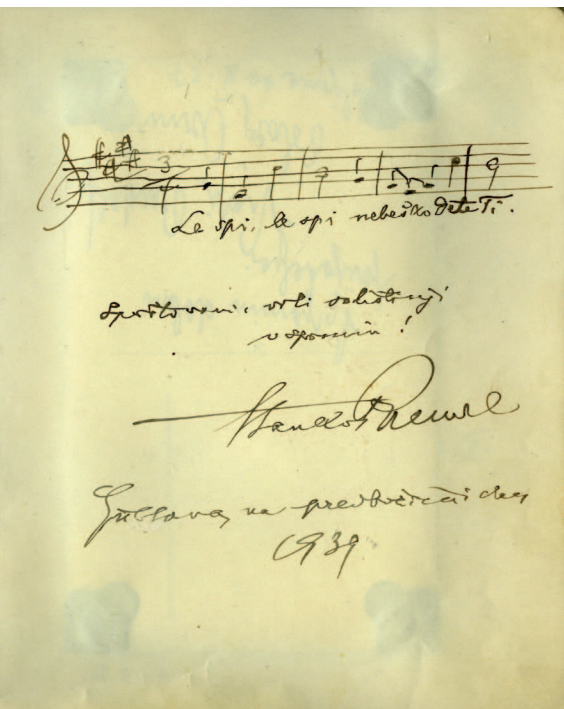 Le spi, le spi nebeško Dete Ti.
Spoštovani, vrli solistinji
v spomin!
Stanko Premrl
Ljubljana, na predbožični dan
1939